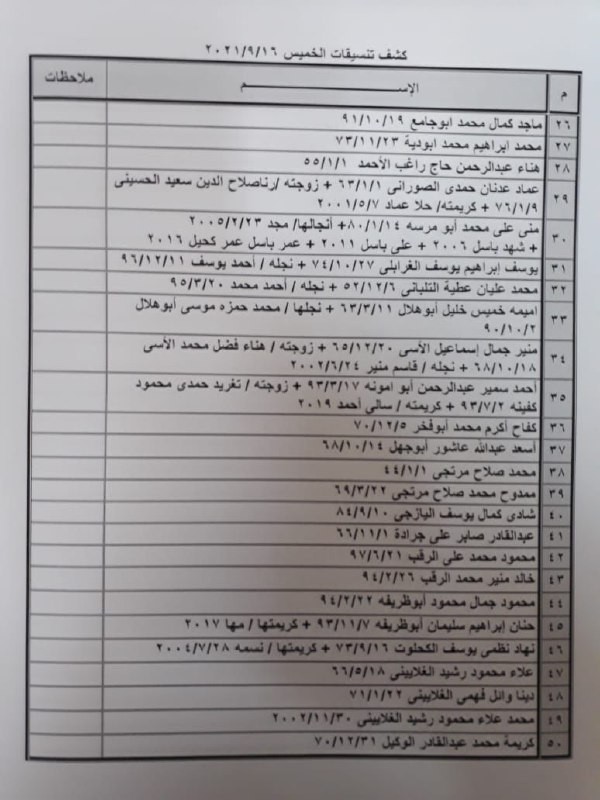 كشف تنسيقات الخميس ٢٠٢١/٩/١٦
م الإســـــــم ملاحظات
٢٦ ماجد كمال محمد ابوجامع ٩١/١٠/١٩
٢٧ محمد ابراهيم محمد ابودية ٧٣/١١/٢٣
٢٨ هناء عبدالرحمن حاج راغب الأحمد ٥٥/١/١
٢٩ عماد عدنان حمدى الصورانى ٦٣/١/١ + زوجته /رناصلاح الدين سعيد الحسينى
٧٦/١/٩ + كريمته/ حلا عماد ٢٠٠١/٥/٧
٣٠ منى على محمد أبو مرسه ٨٠/١/١٤+ أنجالها/ مجد ٢٠٠٥/٢/٢٣
+ شهد باسل ٢٠٠٦ + على باسل ٢٠١١ + عمر باسل عمر كحيل ٢٠١٦
٣١ يوسف إبراهيم يوسف الغرابلى ٧٤/١٠/٢٧ + نجله / أحمد يوسف ٩٦/١٢/١١
٣٢ محمد عليان عطية التلبانى ٥٢/١٢/٦ + نجله / أحمد محمد ٩٥/٣/٢٠
٣٣ اميمه خميس خليل أبوهلال ٦٣/٣/١١ + نجلها / محمد حمزه موسى أبوهلال
٩٠/١٠/٢
٣٤ منير جمال إسماعيل الأسى ٦٥/١٢/٢٠ + زوجته / هناء فضل محمد الأسى
٦٨/١٠/١٨ + نجله / قاسم منير ٢٠٠٢/٦/٢٤
٣٥ أحمد سمير عبدالرحمن أبو امونه ٩٣/٣/١٧ + زوجته / تغريد حمدى محمود
كفينه ٩٣/٧/٢ + كريمته / سالى أحمد ٢٠١٩
٣٦ كفاح أكرم محمد أبوفخر ٧٠/١٢/٥
٣٧ أسعد عبدالله عاشور أبوجهل ٦٨/١٠/١٤
٣٨ محمد صلاح مرتجى ٤٤/١/١
٣٩ ممدوح محمد صلاح مرتجى ٦٩/٣/٢٢
٤٠ شادى كمال يوسف اليازجى ٨٤/٩/١٠
٤١ عبدالقادر صابر على جرادة ٦٦/١١/١
٤٢ محمود محمد على الرقب ٩٧/٦/٢١
٤٣ خالد منير محمد الرقب ٩٤/٢/٢٦
٤٤ محمود جمال محمود أبوظريفه ٩٤/٢/٢٢
٤٥ حنان إبراهيم سليمان أبوظريفه ٩٣/١١/٧ + كريمتها / مها ٢٠١٧
٤٦ نهاد نظمى يوسف الكحلوت ٧٣/٩/١٦ + كريمتها / نسمه ٢٠٠٤/٧/٢٨
٤٧ علاء محمود رشيد الغلايينى ٦٦/٥/١٨
٤٨ دينا وائل فهمى الغلايينى ٧١/١/٢٢
٤٩ محمد علاء محمود رشيد الغلايينى ٢٠٠٢/١١/٣٠
٥٠ كريمة محمد عبدالقادر الوكيل ٧٠/١٢/٣١